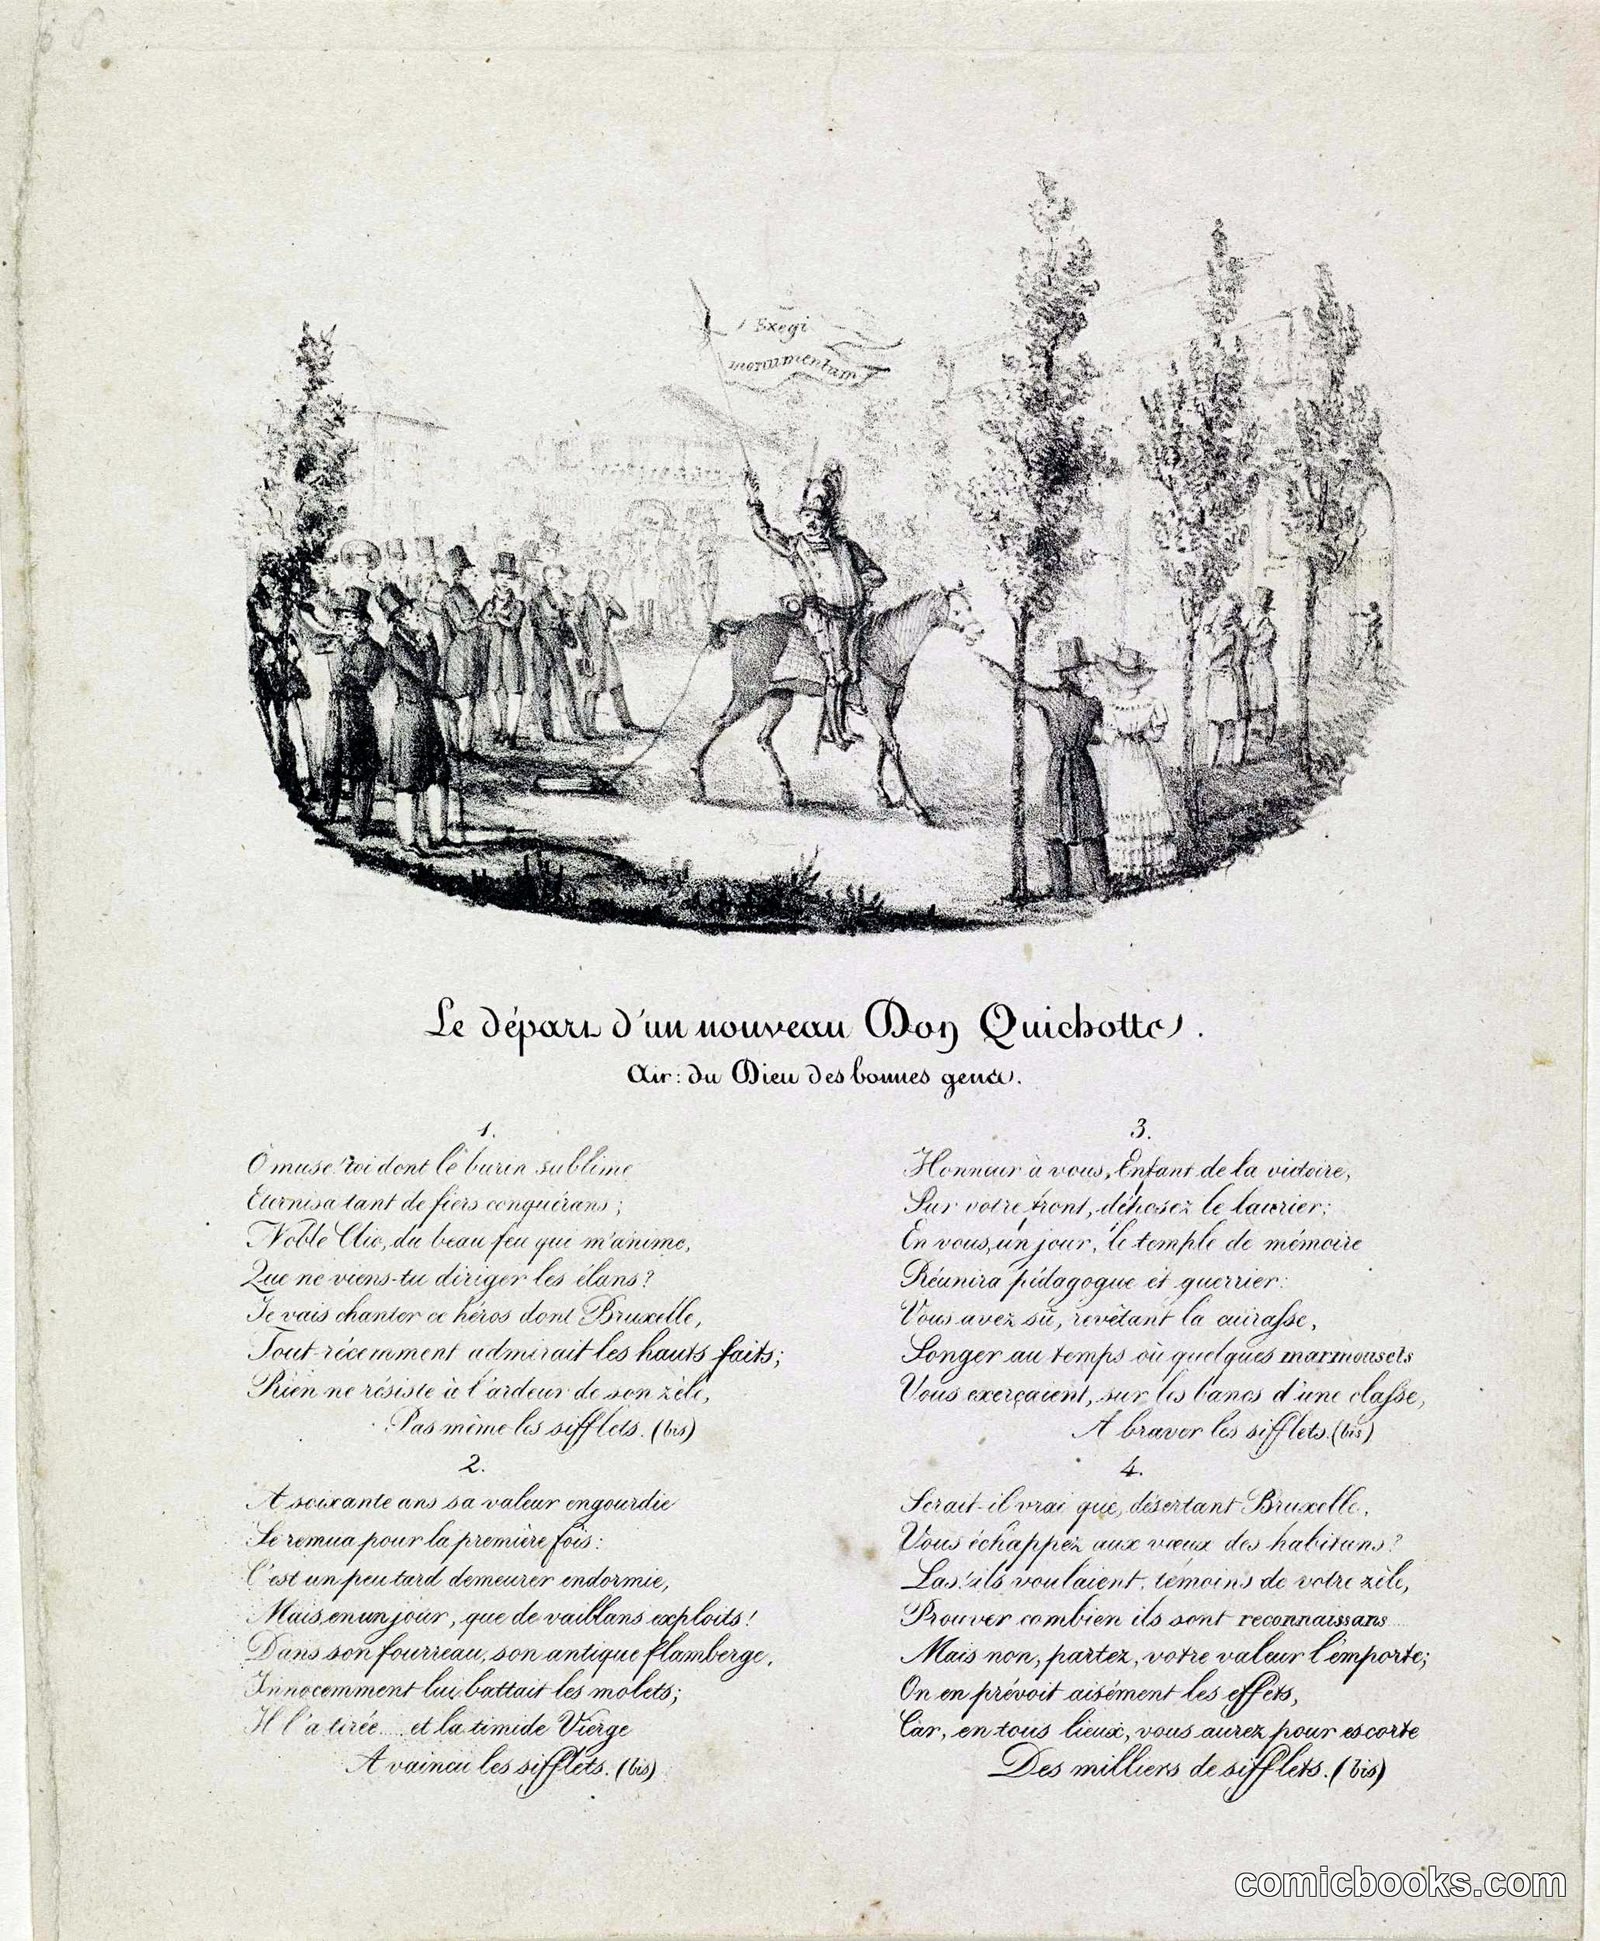 Exegi
monumentum
Le départ d'un nouveau Don Quichotte.
Air: du Dieu des bonnes gens.
1.
O muse! toi dont le burin sublime
Eternisa tant de fiers conquérans;
Noble Clio, du beau feu qui m'anime,
Que ne viens-tu diriger les élans?
Je vais chanter ce héros dont Bruxelle,
Tout récemment admirait les hauts faits;
Rien ne résiste à l'ardeur de son zèle,
Pas même les sifflets. (bis)
2.
A soixante ans sa valeur engourdie
Se remua pour la première fois:
C'est un peu tard demeurer endormie,
Mais, en un jour, que de vaillans exploits!
Dans son fourreau, son antique flamberge,
Innocemment lui battait les molets;
Il l'a tirée.... et la timide Vierge
A vaincu les sifflets. (bis)
3.
Honneur à vous, Enfant de la victoire,
Sur votre front, déposez le laurier;
En vous, un jour, le temple de mémoire
Réunira pédagogue et guerrier:
Vous avez sû, revêtant la cuirasse,
Songer au temps où quelques marmousets
Vous exerçaient, sur les bancs d'une classe,
A braver les sifflets. (bis)
4.
Serait-il vrai que, désertant Bruxelle,
Vous échappez aux vœux des habitans?
Las! ils voulaient, témoins de votre zèle,
Prouver combien ils sont reconnaissans....
Mais non, partez, votre valeur l'emporte;
On en prévoit aisément les effets,
Car, en tous lieux, vous aurez pour escorte
Des milliers de sifflets. (bis)
comicbooks.com